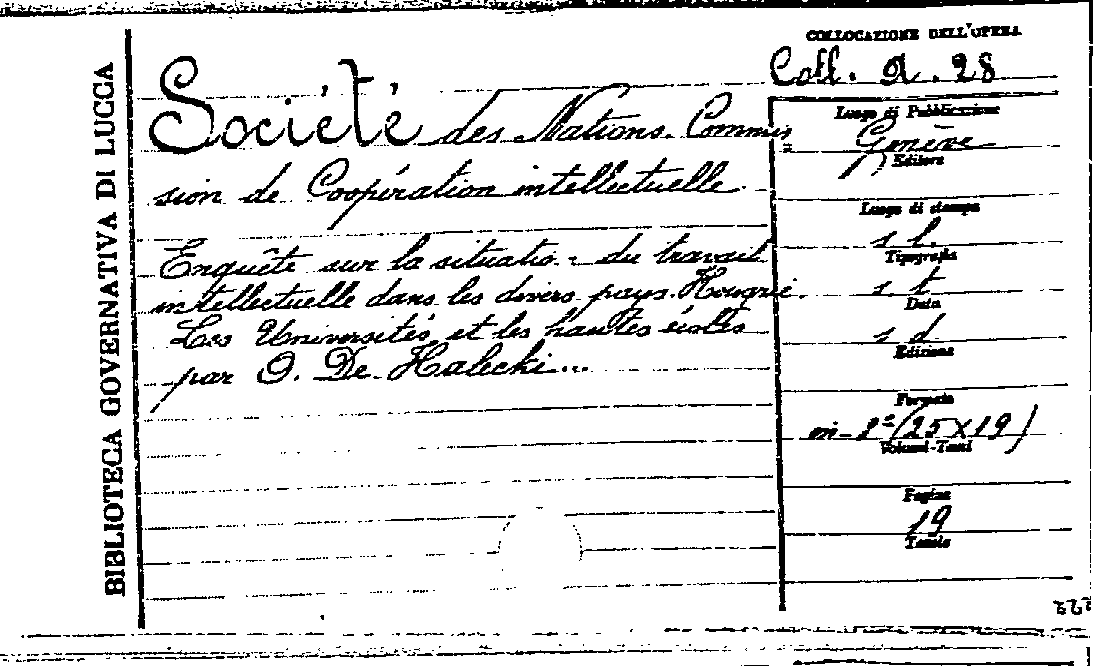 BIBLIOTECA GOVERNATIVA DI LUCCA
COLLOCAZIONE DELL'OPERA
Coll. A. 28
Société des Nations. Commis=
sion de Coopération intellectuelle.
Enquête sur la situatio.- du travail
intellectuelle dans les divers pays. Hongrie.
Les Universités et les hautes écoles
par O. De Halecki...
Luogo di Pubblicazione
Genève
Editore
Luogo di stampa
s l.
Tipografia
s t
Data
s d
Edizione
Formato
in-8° (25 x 19)
Volumi-Tomi
Pagine
19
Tavole